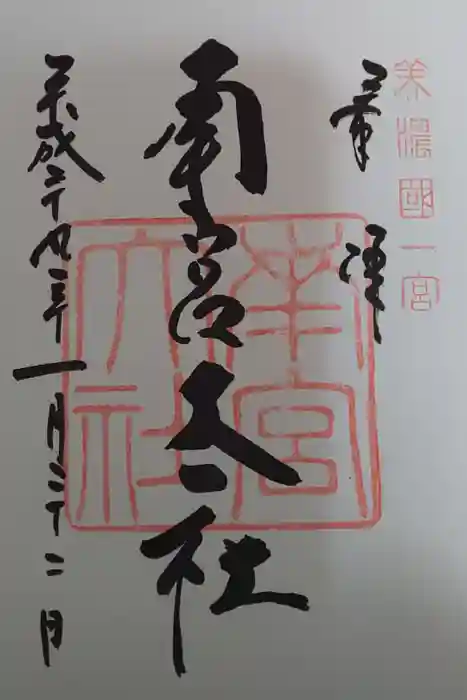 美濃國一宮
奉拝
南宮大社
南宮
大社
平成二十九年一月二十二日